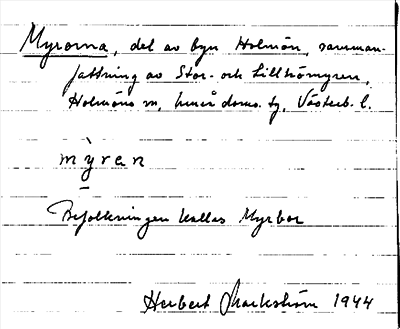 Myrorna, del av byn Holmön, samman-
fattning av Stor- och Lillhömyren,
Holmöns sn, Umeå doms. tg, Västerb. l.
mỳren
Befolkningen kallas Myrbor
Herbert Markström 1944